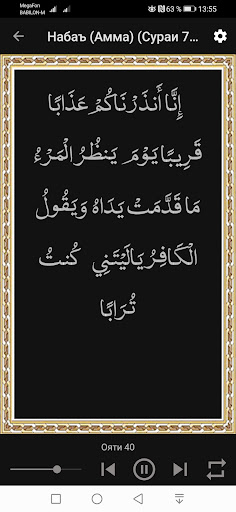 MegaFon
BABILON-M
63 %
13:55
Набаъ (Амма) (Сураи 7...
إِنَّا أَنذَرْنَاكُمْ عَذَابًا
قَرِيبًا يَوْمَ يَنظُرُ الْمَرْءُ
مَا قَدَّمَتْ يَدَاهُ وَيَقُولُ
الْكَافِرُ يَالَيْتَنِي كُنتُ
تُرَابًا
Ояти 40